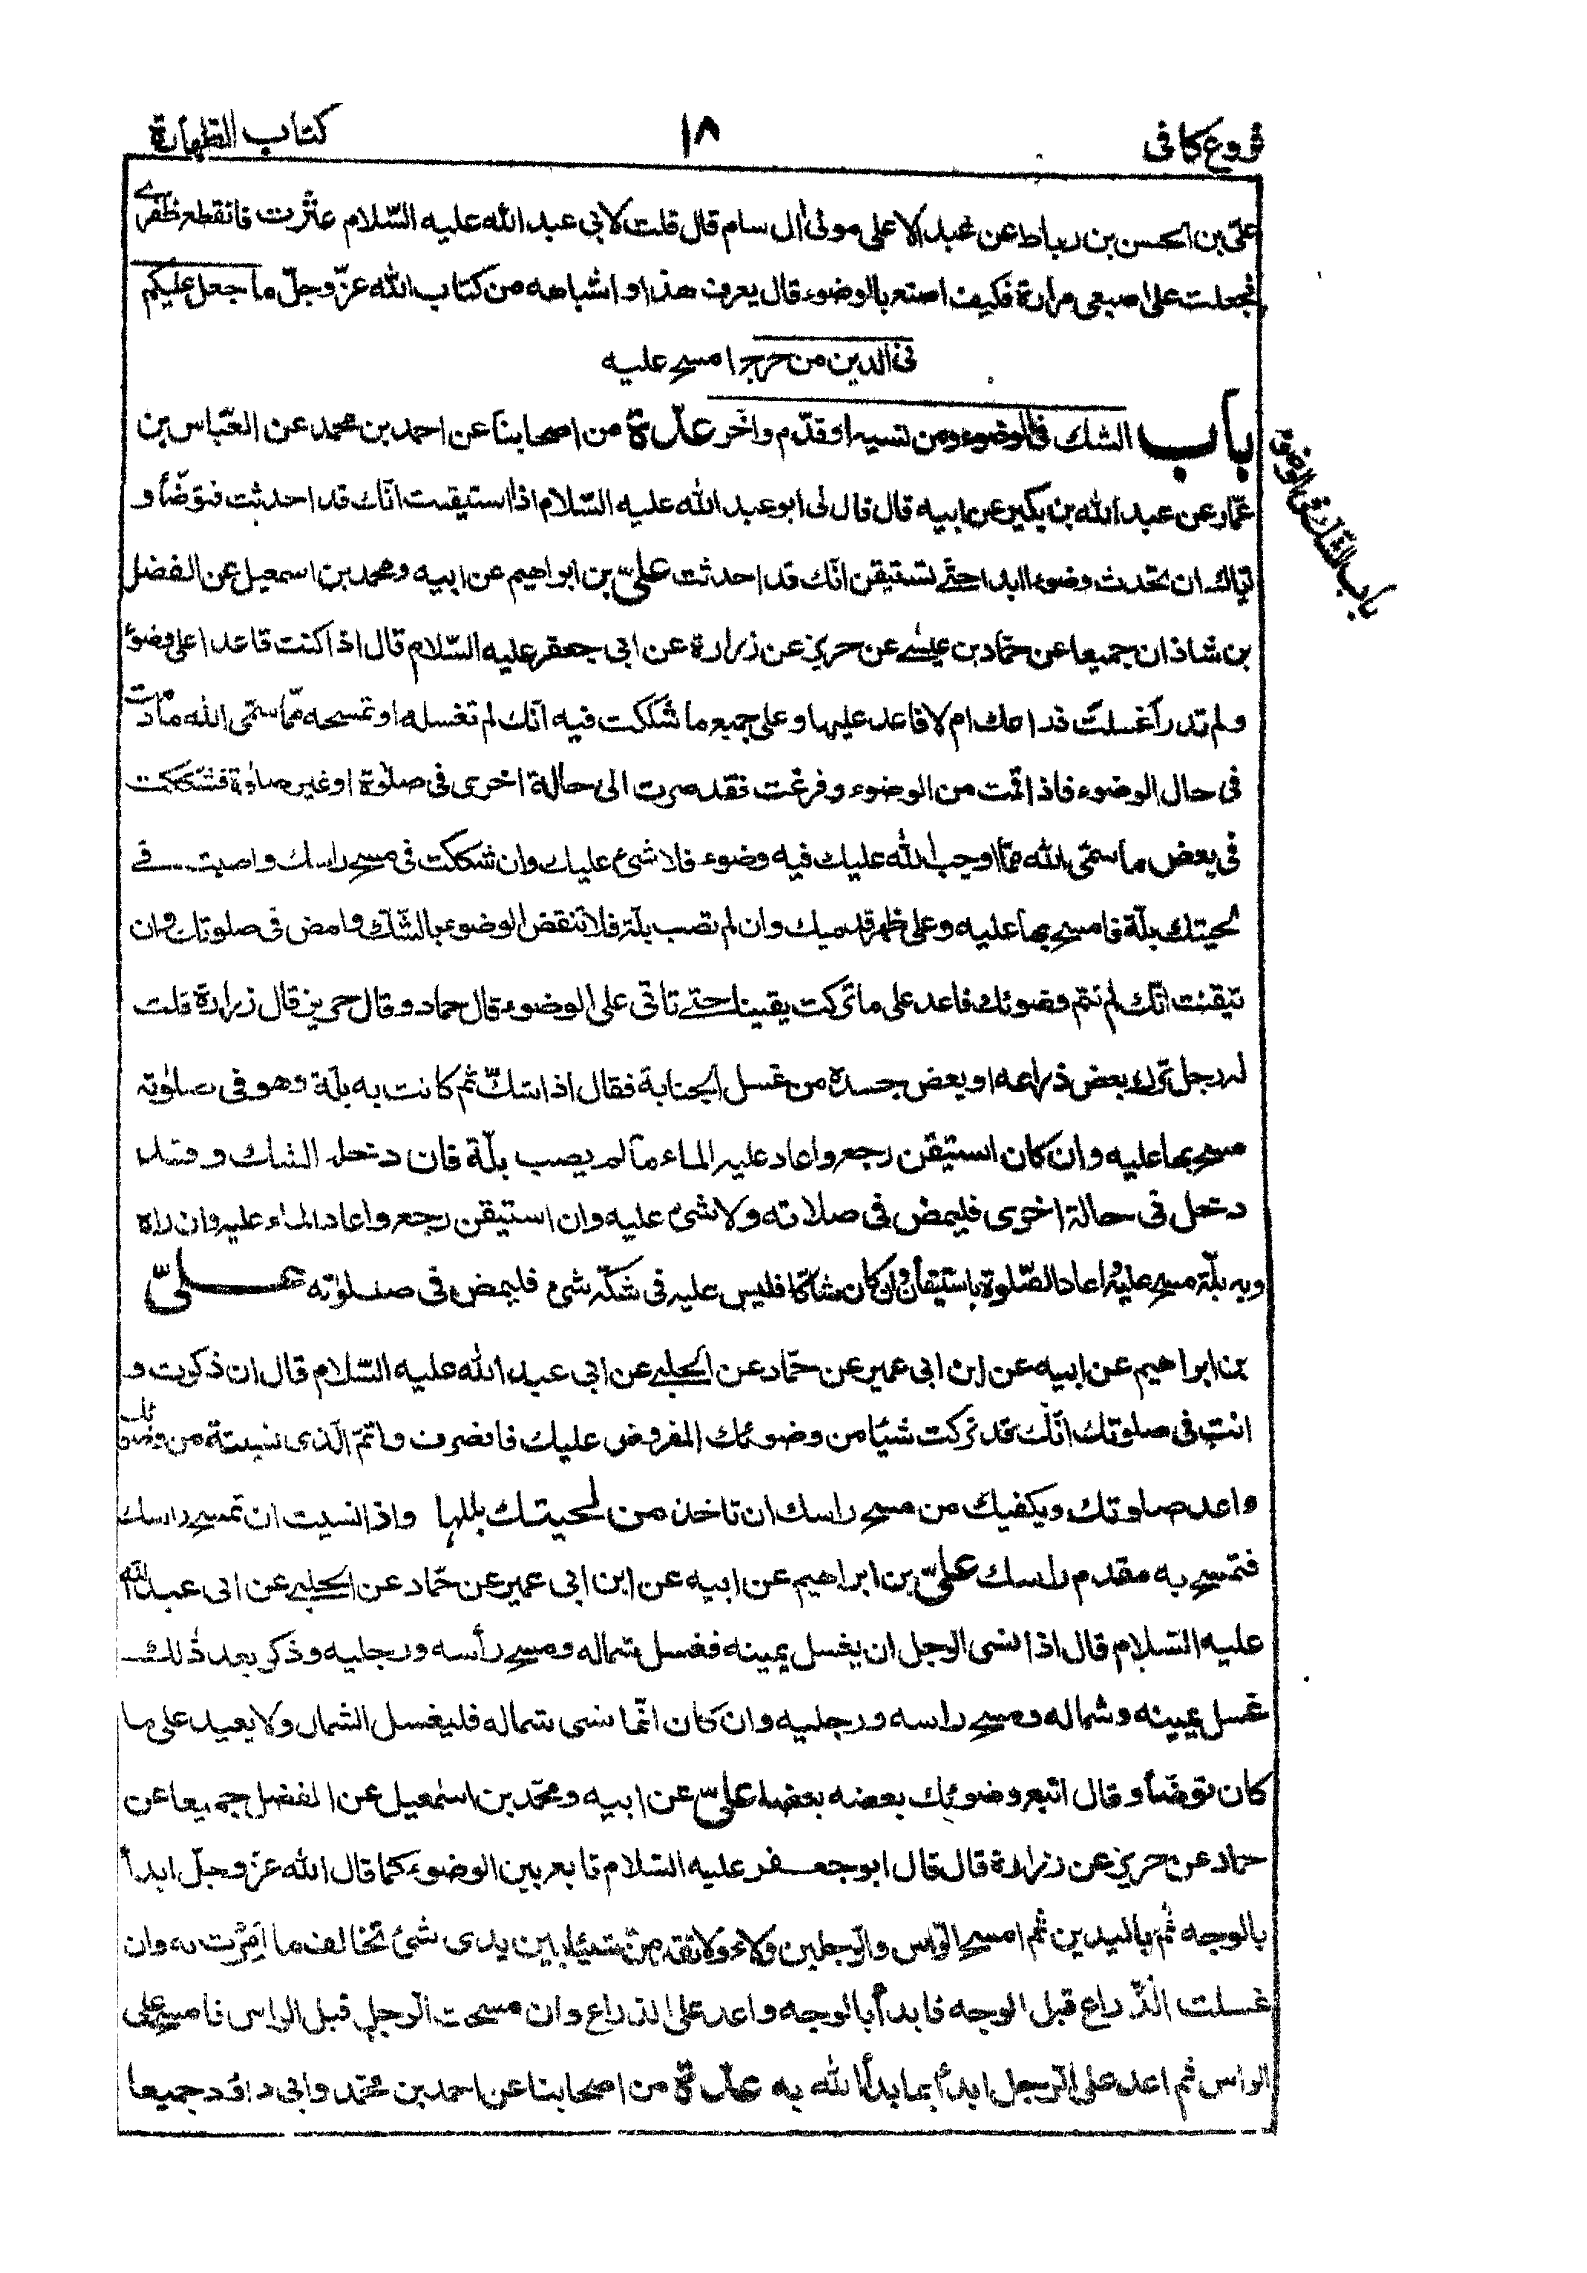 فروع كافى ١٨ كتاب الطهارة
علىّ بن الحسن بن رباط عن عبد الاعلى مولى ال سام قال قلت لابى عبد الله عليه السّلام عثرت فانقطع ظفرے
فجعلت على اصبعى مرارة فكيف اصنع بالوضوء قال يعرف هذا و اشباهه من كتاب الله عزّ وجلّ ما جعل عليكم
فى الدين من حرج امسح عليه
باب الشك فى الوضوء ومن نسيه او قدّم و اخّر عدّة من اصحابنا عن احمد بن محمد عن العبّاس بن
باب الشّك فى الوضوء
عمّار عن عبد الله بن بكير عن ابيه قال قال لى ابو عبد الله عليه السّلام اذا استيقنت انّك قد احدثت فتوضّأ و
ايّاك ان تحدث وضوءا ابدا حتے تستيقن انّك قد احدثت علىّ بن ابراهيم عن ابيه ومحمد بن اسمعيل عن الفضل
بن شاذان جميعا عن حمّاد بن عيسے عن حريز عن زرارة عن ابى جعفر عليه السّلام قال اذا كنت قاعدا على وضوءٔ
و لم تدر أغسلت ذراعك ام لا فاعد عليها و على جميع ما شككت فيه انّك لم تغسله او تمسحه ممّا سمّى الله ما دمت
فى حال الوضوء فاذا قمت من الوضوء و فرغت فقد صرت الى حالة اخرى فى صلوٰة او غير صلوٰة فشككت
فى بعض ما سمّى الله ممّا اوجب الله عليك فيه وضوء فلا شىء عليك وان شككت فى مسح راسك و اصبت فے
لحيتك بلّة فامسح بها عليه و على ظهر قدميك وان لم تصب بلّة فلا تنقض الوضوء بالشّك و امض فى صلوتك و ان
تيقنت انّك لم تتم وضوئك فاعد على ما تركت يقينا حتے تاتى على الوضوء قال حماد و قال حريز قال زرارة قلت
له رجل ترك بعض ذراعه او بعض جسده من غسل الجنابة فقال اذا شكّ ثم كانت به بلّة وهو فى صلوٰته
مسح بها عليه و ان كان استيقن رجع و اعاد عليه الماء ما لم يصب بلّة فان دخله الشك و قد
دخل فى حالة اخرى فليمض فى صلاته و لا شىء عليه و ان استيقن رجع و اعاد الماء عليه و ان راه
و به بلّة مسح عليه و اعاد الصّلوة باستيقان و ان كان شاكّا فليس عليه فى شكّه شىء فليمض فى صلوٰته علىّ
بن ابراهيم عن ابيه عن ابن ابى عمير عن حمّاد عن الحلبے عن ابى عبد الله عليه السّلام قال ان ذكرت و
انت فى صلوتك انّك قد تركت شيئا من وضوئك المفروض عليك فانصرف و اتمّ الّذى نسيته من وضوئك
و اعد صلوتك و يكفيك من مسح راسك ان تاخذ من لحيتك بللها و اذا نسيت ان تمسح راسك
فتمسح به مقدم راسك علىّ بن ابراهيم عن ابيه عن ابن ابى عمير عن حمّاد عن الحلبے عن ابى عبد الله
عليه السّلام قال اذا نسى الرجل ان يغسل يمينه فغسل شماله و مسح رأسه و رجليه و ذكر بعد ذٰلك
غسل يمينه و شماله و مسح راسه و رجليه و ان كان انّما نسى شماله فليغسل الشمال و لا يعيد على ما
كان توضّأ و قال اتبع وضوئك بعضه بعضا علىّ عن ابيه و محمّد بن اسمٰعيل عن الفضل جميعا عن
حماد عن حريز عن زرارة قال قال ابو جعفر عليه السّلام تابع بين الوضوء كما قال الله عزّ و جلّ ابدأ
بالوجه ثم باليدين ثم امسح الرّاس و الرّجلين و لا تقدمنّ شيئا بين يدى شىءٔ تخالف ما اُمِرْت به و ان
غسلت الذّراع قبل الوجه فابدأ بالوجه و اعد على الذراع و ان مسحت الرّجل قبل الراس فامسح على
الراس ثم اعد على الرّجل ابدأ بما بدأ الله به عدّة من اصحابنا عن احمد بن محمّد و ابى داؤد جميعا